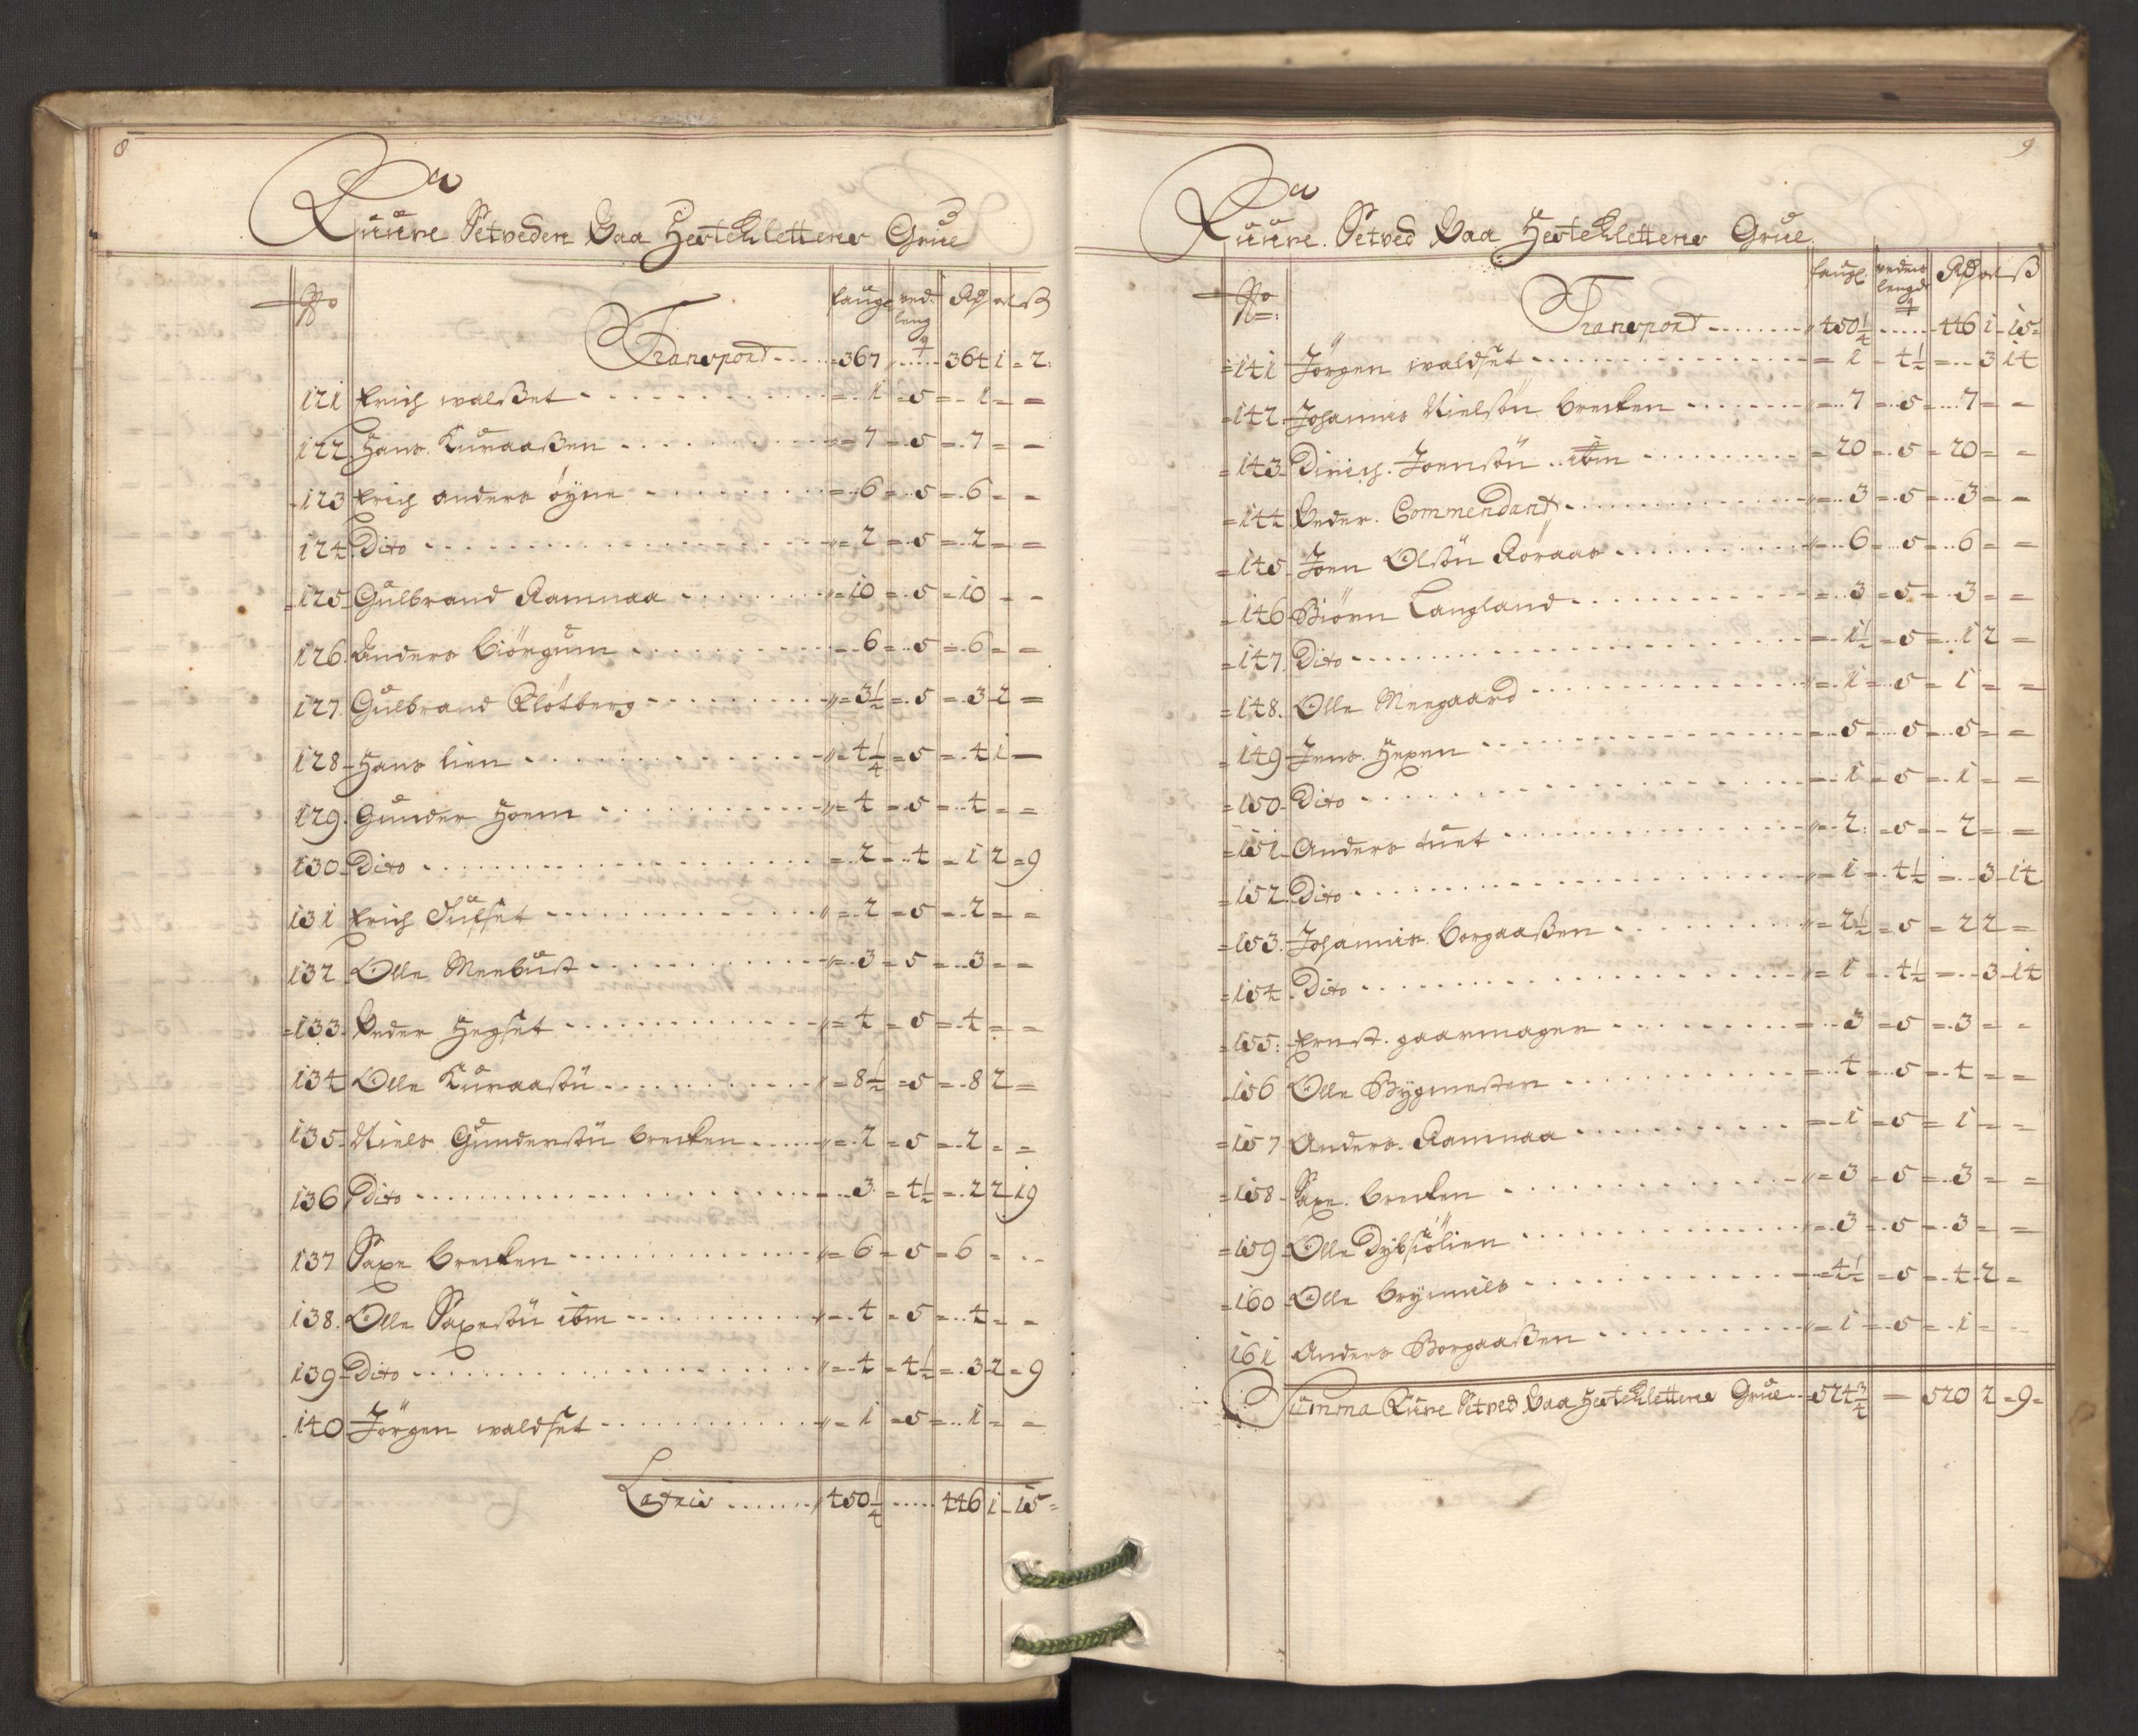 8
Kuure Setveden Paa Hesteklettens Grue
No faugl ved. leng Rd ort ß
Transport 367 364 1 2
121 Erich walßet 1 5 1
122 Hans Kuraaßen 7 5 7
123 Erich anders öyne 6 5 6
124 Dito 2 5 2
125 Gulbrand Ramnaa 10 5 10
126 Anders biörgum 6 5 6
127 Gulbrand Klötberg 3½ 5 3 2
128 Hans lien 4¼ 5 4 1
129 Gunder Hoem 4 5 4
130 Dito 2 4 1 2 9
131 Erich Sulset 2 5 2
132 Olle Meebust 3 5 3
133 Peder Hegset 4 5 4
134 Olle Kuraasön 8½ 5 8 2
135 Niels Gundersön brecken 2 5 2
136 Dito 3 4½ 2 2 19
137 Saxe brecken 6 5 6
138 Olle Saxesön ibm 4 5 4
139 Dito 4 4½ 3 2 9
140 Jörgen waldset 1 5 1
Latris 450¼ 446 1 15
9
Kuure Setved Paa Hesteklettens Grue
No faugl. vedens lengde Rd ort ß
Transport 450¼ 446 1 15
141 Jörgen waldset 1 4½ 3 14
142 Johannis Nielsön brecken 7 5 7
143 Dirich Joensön ibm 20 5 20
144 Peder Commendant 3 5 3
145 Joen Olsön Röraas 6 5 6
146 Biörn Langland 3 5 3
147 Dito 1½ 5 1 2
148 Olle Meegaard 1 5 1
149 Jens Hexem 5 5 5
150 Dito 1 5 1
151 Anders tuet 2 5 2
152 Dito 1 4½ 3 14
153 Johannis borgaaßen 2½ 5 2 2
154 Dito 1 4½ 3 14
155 Ernst gaarmager 3 5 3
156 Olle Bygmester 4 5 4
157 Anders Ramnaa 1 5 1
158 Saxe brecken 3 5 3
159 Olle Dybsiölien 3 5 3
160 Olle brynnils 4½ 5 4 2
161 Anders Borgaaßen 1 5 1
Summa Kuure Setved Paa Hesteklettens Grue 524¾ 520 2 9